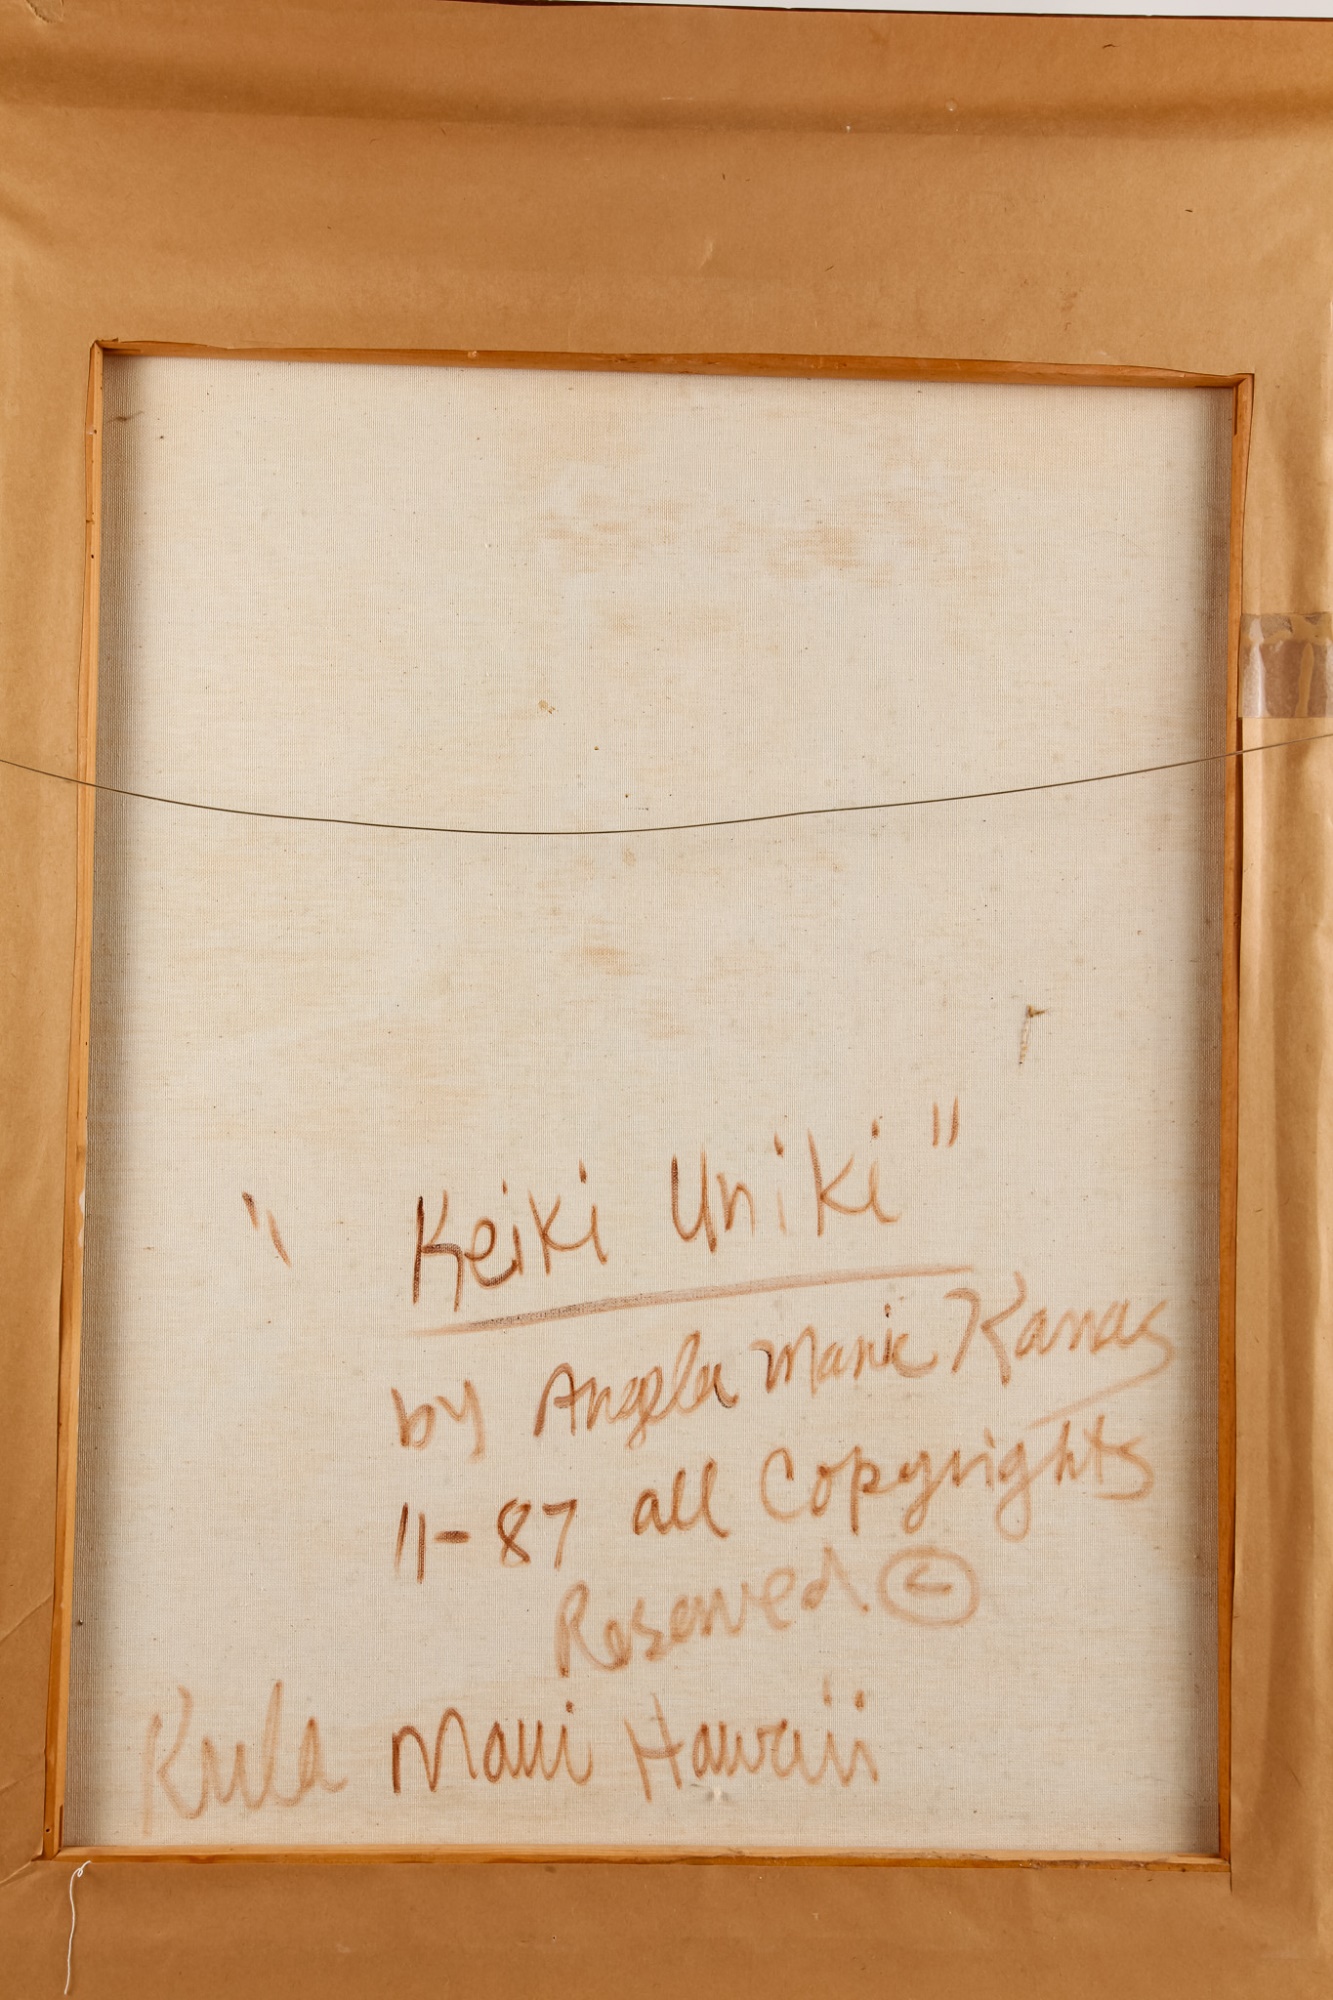 "Keiki Uniki"
by Angela Marie Kanas
11-87 all Copyrights
Reserved ©
Kula Maui Hawaii